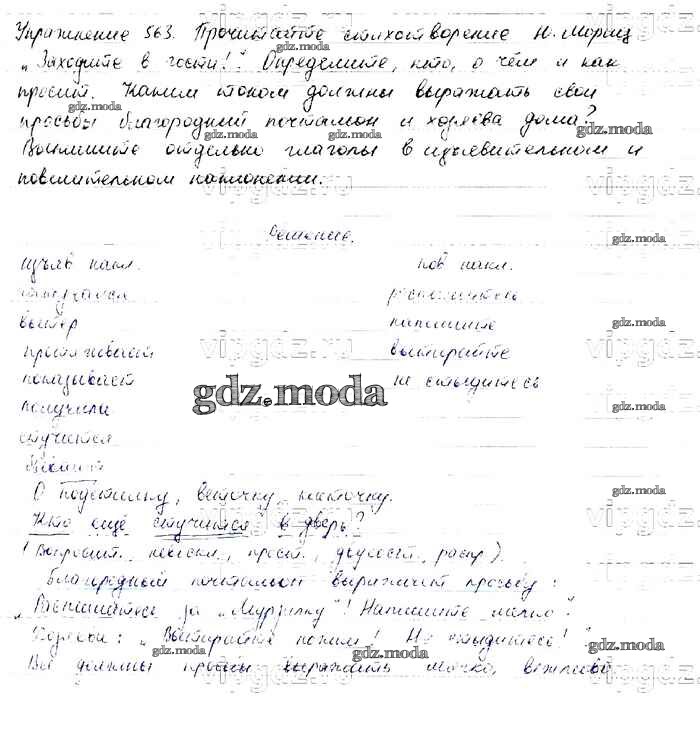 Упражнение 563. Прочитайте стихотворение Ю. Мориц
„Заходите в гости!“ Определите, кто, о чём и как
просит. Каким тоном должны выражать свои
просьбы благородный почтальон и хозяева дома?
Выпишите отдельно глаголы в изъявительном и
повелительном наклонении.
Решение.
изъяв накл. пов накл.
распишитесь
вытер напишите
протягивает вытирайте
показывает не стыдитесь
получили
стучится
О подстилку, веточку, кисточку.
Кто ещё стучится в дверь?
(Вопросит., невоскл., прост., двусост., распр).
Благородный почтальон выражает просьбу:
„Распишитесь за „Мурзилку“! Напишите
Хозяева: „Вытирайте ноги! Не стыдитесь!“
Все должны просьбы выражать мягко, вежливо
gdz.moda
vipgdz.ru